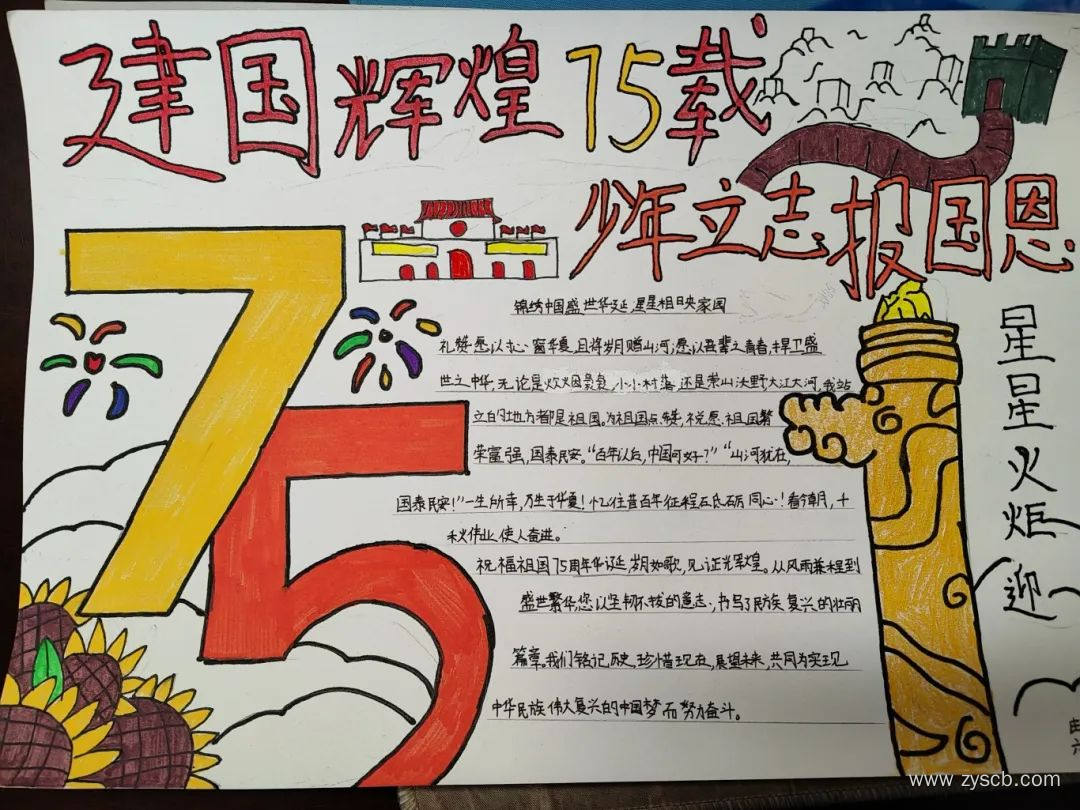 建国辉煌75载
少年立志报国恩
75
锦绣中国盛世华延,星星相映家国
礼赞愿以寸心寄华夏,且将岁月赠山河,愿以吾辈之青春,捍卫盛
世之中华,无论是炊烟袅袅,小小村落,还是崇山沃野大江大河,我站
立的地方都是祖国。为祖国点赞,祝愿祖国繁
荣富强,国泰民安。“百年以后,中国可好?”“山河犹在,
国泰民安!”一生所幸,乃生于华夏!忆往昔百年征程,砥砺同心!看今朝,十
秋伟业,使人奋进。
祝福祖国75周年华诞,岁月如歌,见证光辉煌。从风雨兼程到
盛世繁华,您以坚韧不拔的意志,书写了民族复兴的壮丽
篇章。我们铭记历史,珍惜现在,展望未来,共同为实现
中华民族伟大复兴的中国梦而努力奋斗。
星星火炬迎
www.zyscb.com